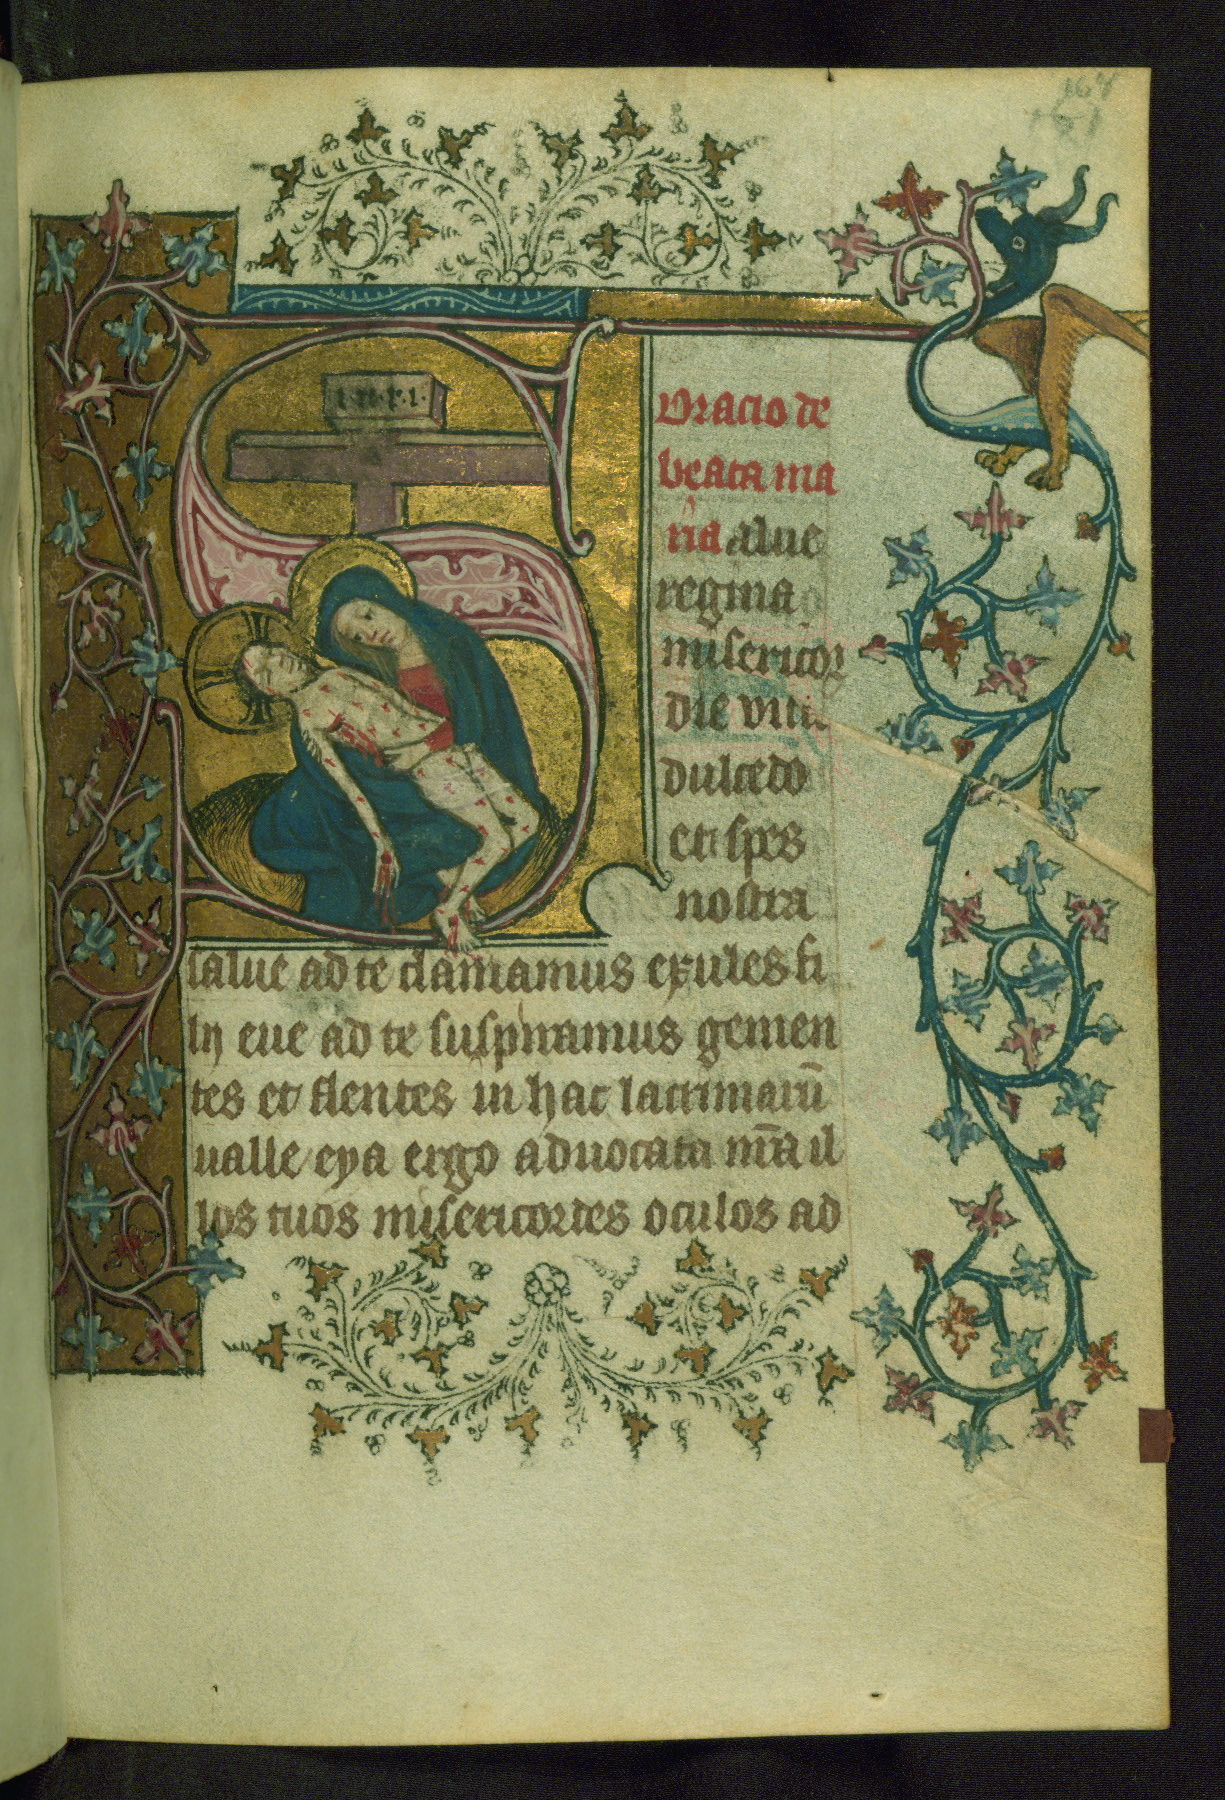 164
151
I·N·R·I·
Oracio de
beata ma
ria alue
regina
misericor
die vita
dulcedo
et spes
nostra
salue ad te clamamus exules fi
lij eue ad te suspiramus gemen
tes et flentes in hac lacrimarū
ualle eya ergo aduocata nr̄a il
los tuos misericordes oculos ad